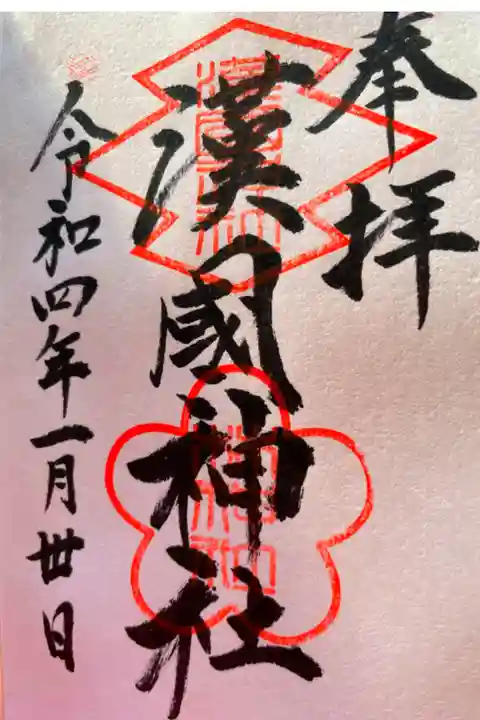 奉拝
漢國神社
令和四年一月丗日